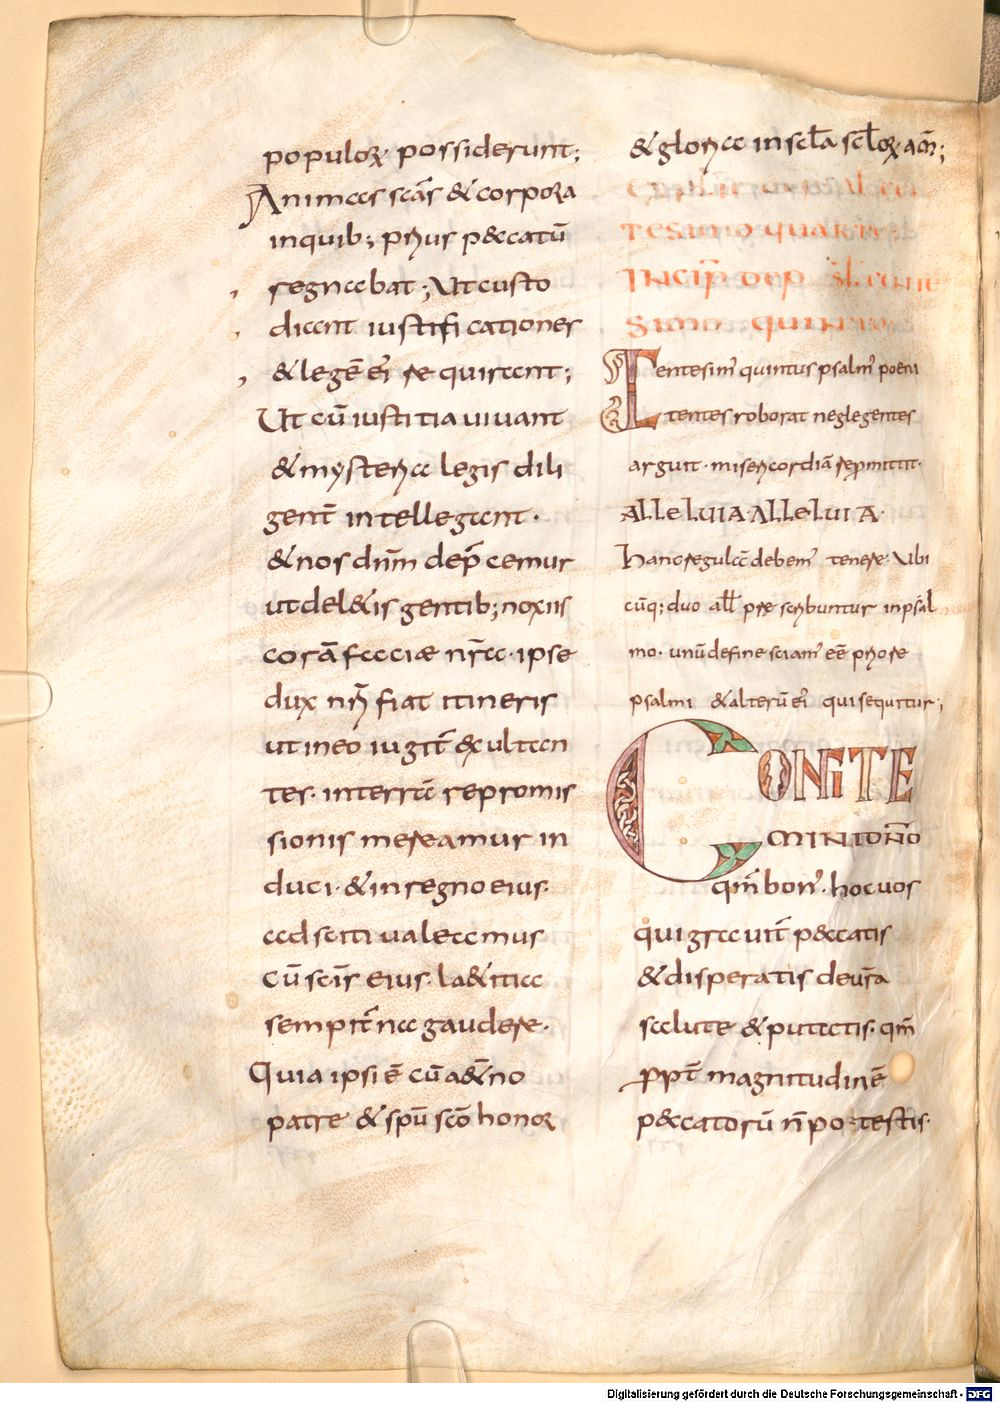 populoꝝ· possiderunt;
Animas sc̄as & corpora
in quib; prius peccatū
regnabat; Ut custo
diant iustificationes
& legē ei' requirant;
Ut cū iustitia uiuant
& mysteria legis dili
gent̄ intellegant·
& nos dn̄m dep̄cemur
ut del&is gentib; noxiis
corā faciæ nr̄a· ipse
dux nr̄i fiat itineris
ut in eo iugit̄ exultan
tes· in terrā repromis
sionis mereamur in
duci· & in regno eius·
adsoti ualeamus
cū sc̄is eius· la&itia
sempit̄na gaudere·
Quia ipsi ē cū a&̄no
patre & sp̄u sc̄o honor
& gloria in scl̄a scl̄oꝝ· am̄;
tesimo quarto
Incip̄ de p̄sl̄ cente
simo quinto
Centesim' quintus psalm' poeni
tentes roborat neglegentes
arguit· misericordiā repromittit·
ALLELUIA· ALLELUIA·
Hanc regulā debem' tenere· Ubi
cūq; duo all̄ prescribuntur in psal
mo· unū de fine sciam' eē priore
psalmi & alterū ei' qui sequitur;
CONFITE
MINI DN̄O
qm̄ bon'· hoc uos
qui grauit̄ peccatis
& disperatis de ur̄a
salute & putatis· qm̄
ꝓpt̄ magnitudinē
peccatorū n̄ potestis·
Digitalisierung gefördert durch die Deutsche Forschungsgemeinschaft - DFG